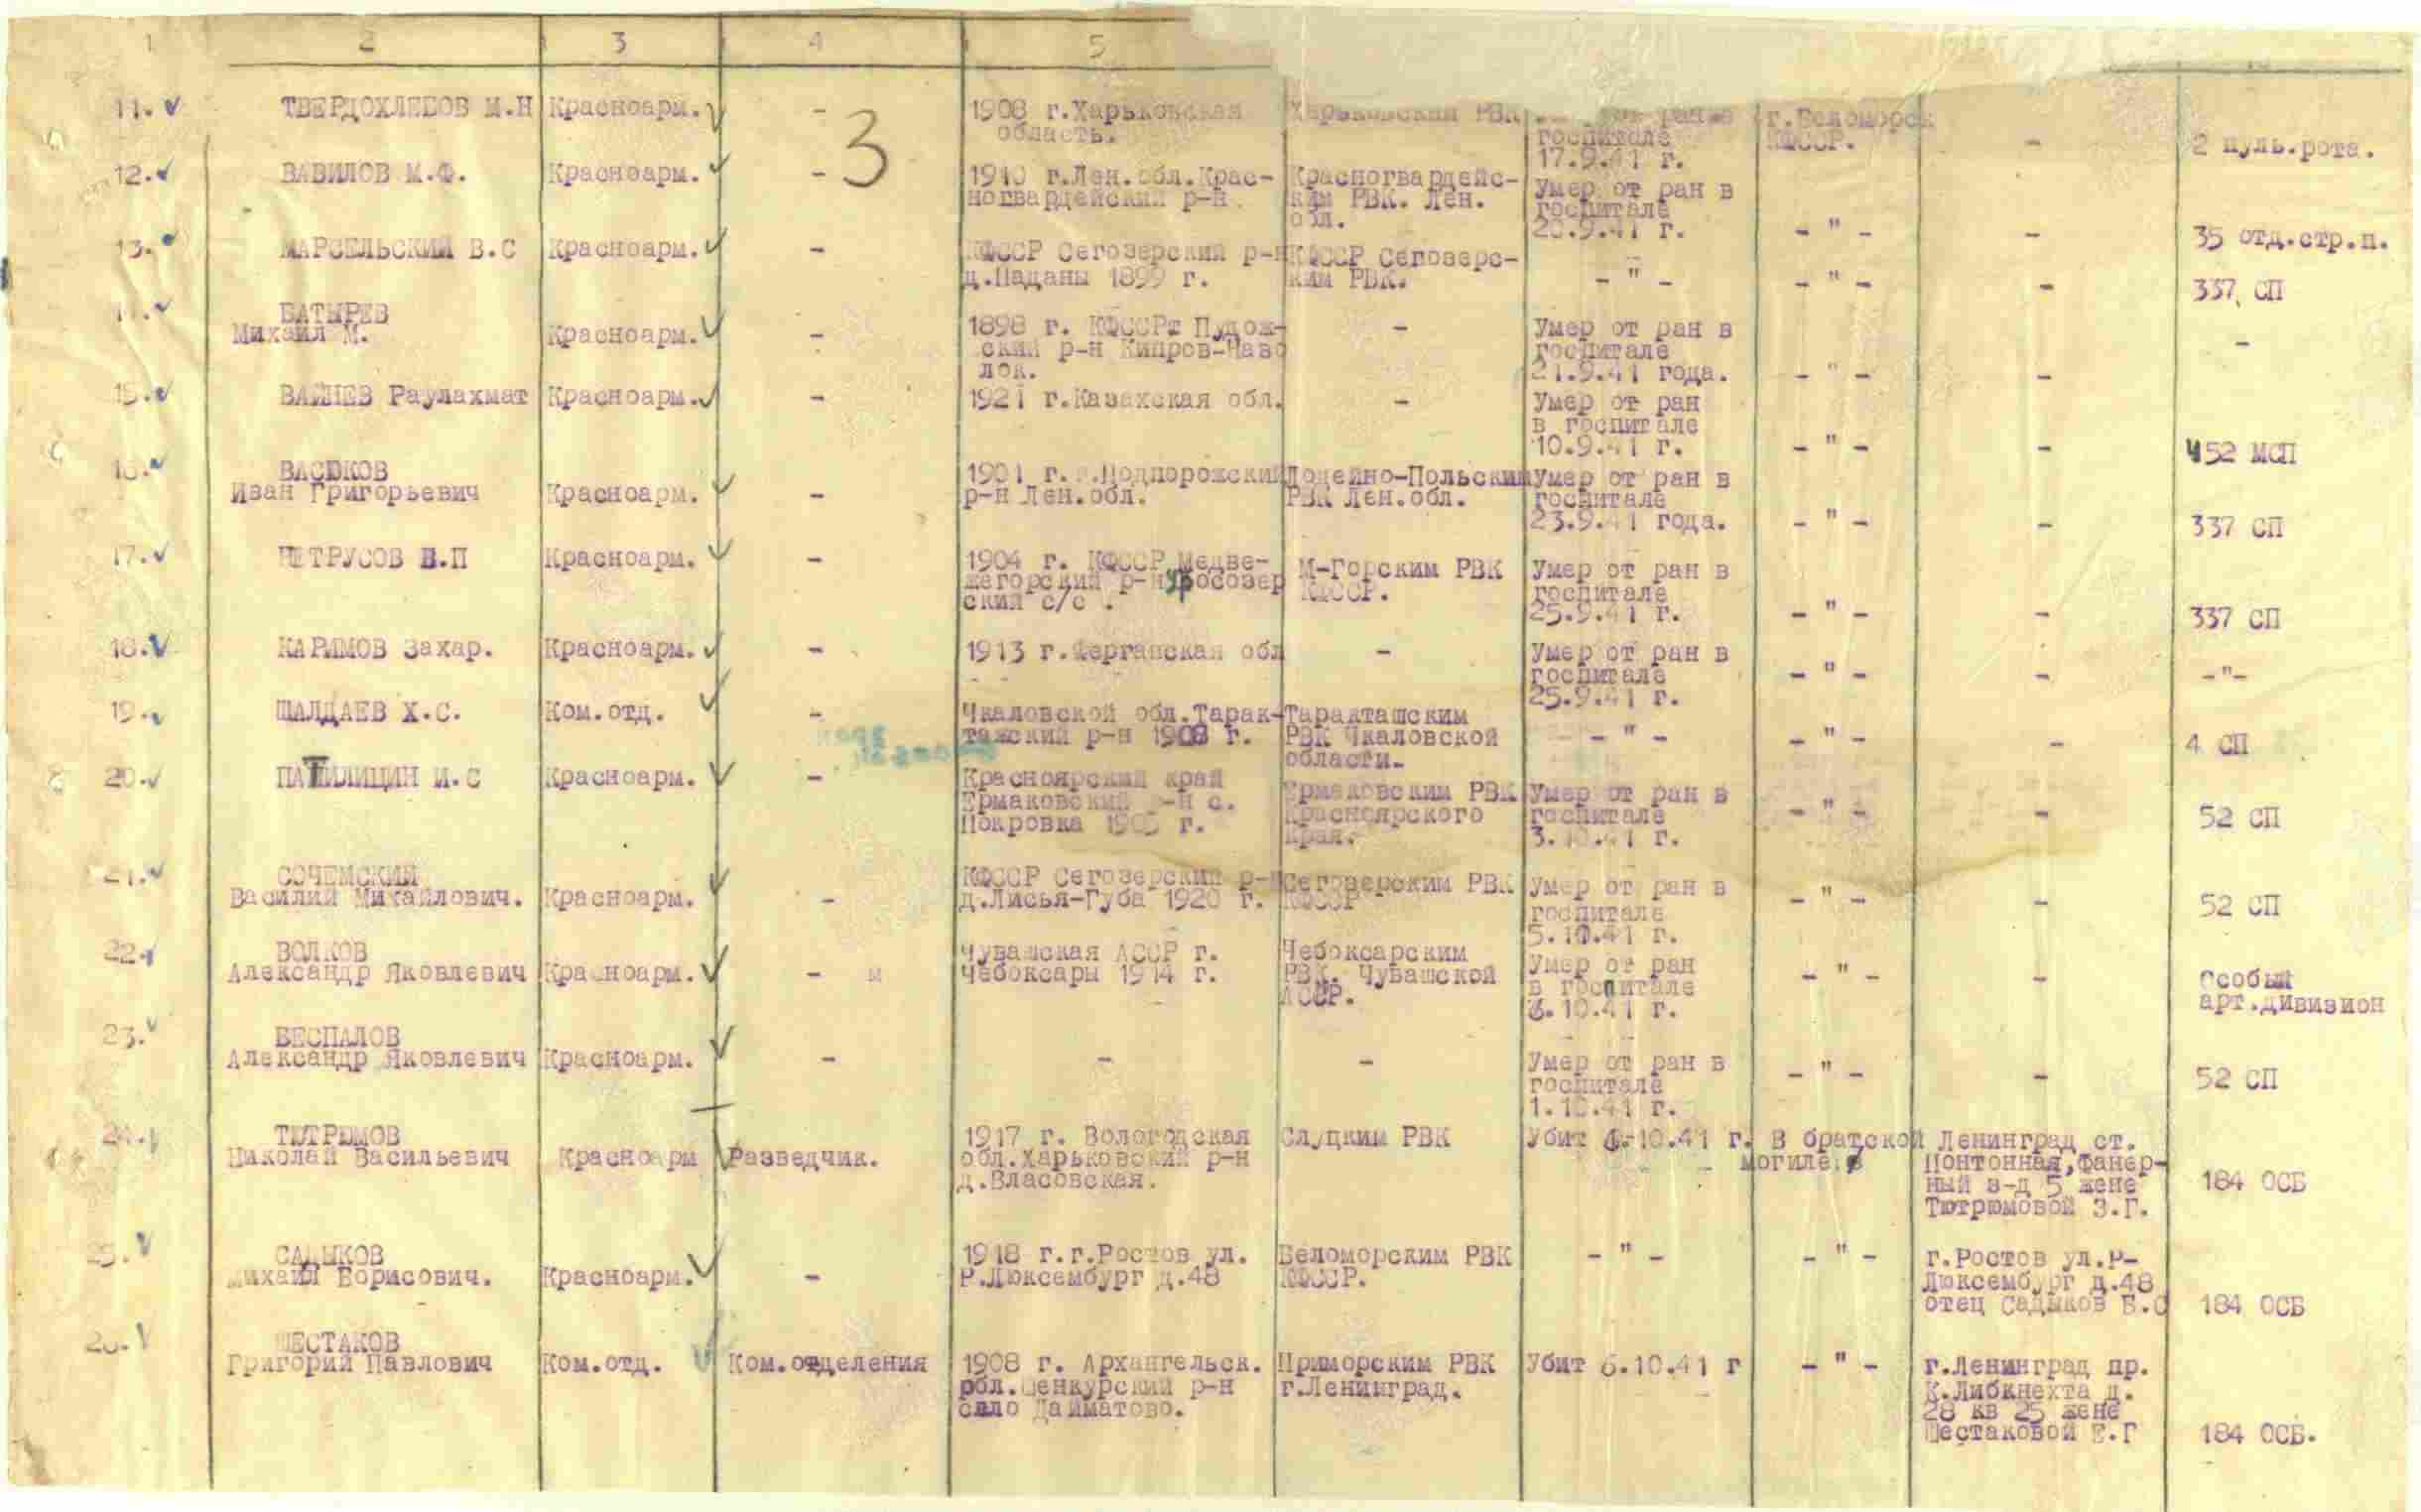 1 2 3 4 5
11. ТВЕРДОХЛЕБОВ М.Н Красноарм. - 1908 г.Харьковская Харьковским РВК г.Беломорск
область. госпитале КФССР. - 2 пуль.рота.
17.9.41 г.
3
12. ВАВИЛОВ М.Ф. Красноарм. - 1910 г.Лен.обл.Крас- Красногвардейс- Умер от ран в
ногвардейский р-н. ким РВК. Лен. госпитале
обл. 20.9.41 г. - " - - 35 отд.стр.п.
13. МАРСЕЛЬСКИЙ В.С Красноарм. - КФССР Сегозерский р-н КФССР Сегозерс-
д.Паданы 1899 г. ким РВК. - " - - " - - 337 СП
БАТЫРЕВ
Михаил М. Красноарм. - 1898 г. КФССР Пудож- - Умер от ран в -
ский р-н Кипров-Наво госпитале
лок. 21.9.41 года. - " - -
15. ВАЛИЕВ Раулахмат Красноарм. - 1921 г.Казахская обл. - Умер от ран
в госпитале
10.9.41 г. - " - - 452 МСП
16. ВАСЮКОВ
Иван Григорьевич Красноарм. - 1901 г. Подпорожский Лодейно-Польским Умер от ран в
р-н Лен.обл. РВК Лен.обл. госпитале
23.9.41 года. - " - - 337 СП
17. ПЕТРУСОВ В.П Красноарм. - 1904 г. КФССР Медве- М-Горским РВК Умер от ран в
жегорский р-н Уросозер КФССР. госпитале
ский с/с . 25.9.41 г. - " - - 337 СП
18. КАРИМОВ Захар. Красноарм. - 1913 г.Ферганская обл - Умер от ран в
госпитале - " - - -"-
25.9.41 г.
19. ШАЛДАЕВ Х.С. Ком.отд. - Чкаловской обл.Тарак- Таракташским
тажский р-н 1908 г. РВК Чкаловской - " - - " - - 4 СП
области.
20. ПАТИЛИЦИН И.С Красноарм. - Красноярский край Ермаковским РВК Умер от ран в
Ермаковский р-н с. Красноярского госпитале - " - - 52 СП
Покровка 1905 г. края. 3.10.41 г.
21. СОЧЕМСКИЙ
Василий Михайлович. Красноарм. - КФССР Сегозерский р-н Сегозерским РВК Умер от ран в
д.Лисья-Губа 1920 г. КФССР госпитале - " - - 52 СП
5.10.41 г.
22. ВОЛКОВ
Александр Яковлевич Красноарм. - м Чувашская АССР г. Чебоксарским Умер от ран
Чебоксары 1914 г. РВК. Чувашской в госпитале - " - - Особый
АССР. 6.10.41 г. арт.дивизион
23. БЕСПАЛОВ
Александр Яковлевич Красноарм. - - - Умер от ран в - " - - 52 СП
госпитале
1.10.41 г.
24. ТЮТРЮМОВ
Николай Васильевич Красноарм Разведчик. 1917 г. Вологодская Слуцким РВК Убит 1.10.41 г. В братской Ленинград ст.
обл.Харьковский р-н могиле Понтонная,фанер-
д.Власовская. ный з-д 5 жене 184 ОСБ
Тютрюмовой З.Г.
25. САДЫКОВ
Михаил Борисович. Красноарм. - 1918 г.г.Ростов ул. Беломорским РВК - " - - " - г.Ростов ул.Р-
Р.Люксембург д.48 КФССР. Люксембург д.48
отец Садыков Б.С 184 ОСБ
26. ШЕСТАКОВ
Григорий Павлович Ком.отд. Ком.отделения 1908 г. Архангельск. Приморским РВК Убит 6.10.41 г - " - г.Ленинград пр.
обл.Шенкурский р-н г.Ленинград. К.Либкнехта д.
село Дайматово. 28 кв 25 жене
Шестаковой Е.Г 184 ОСБ.